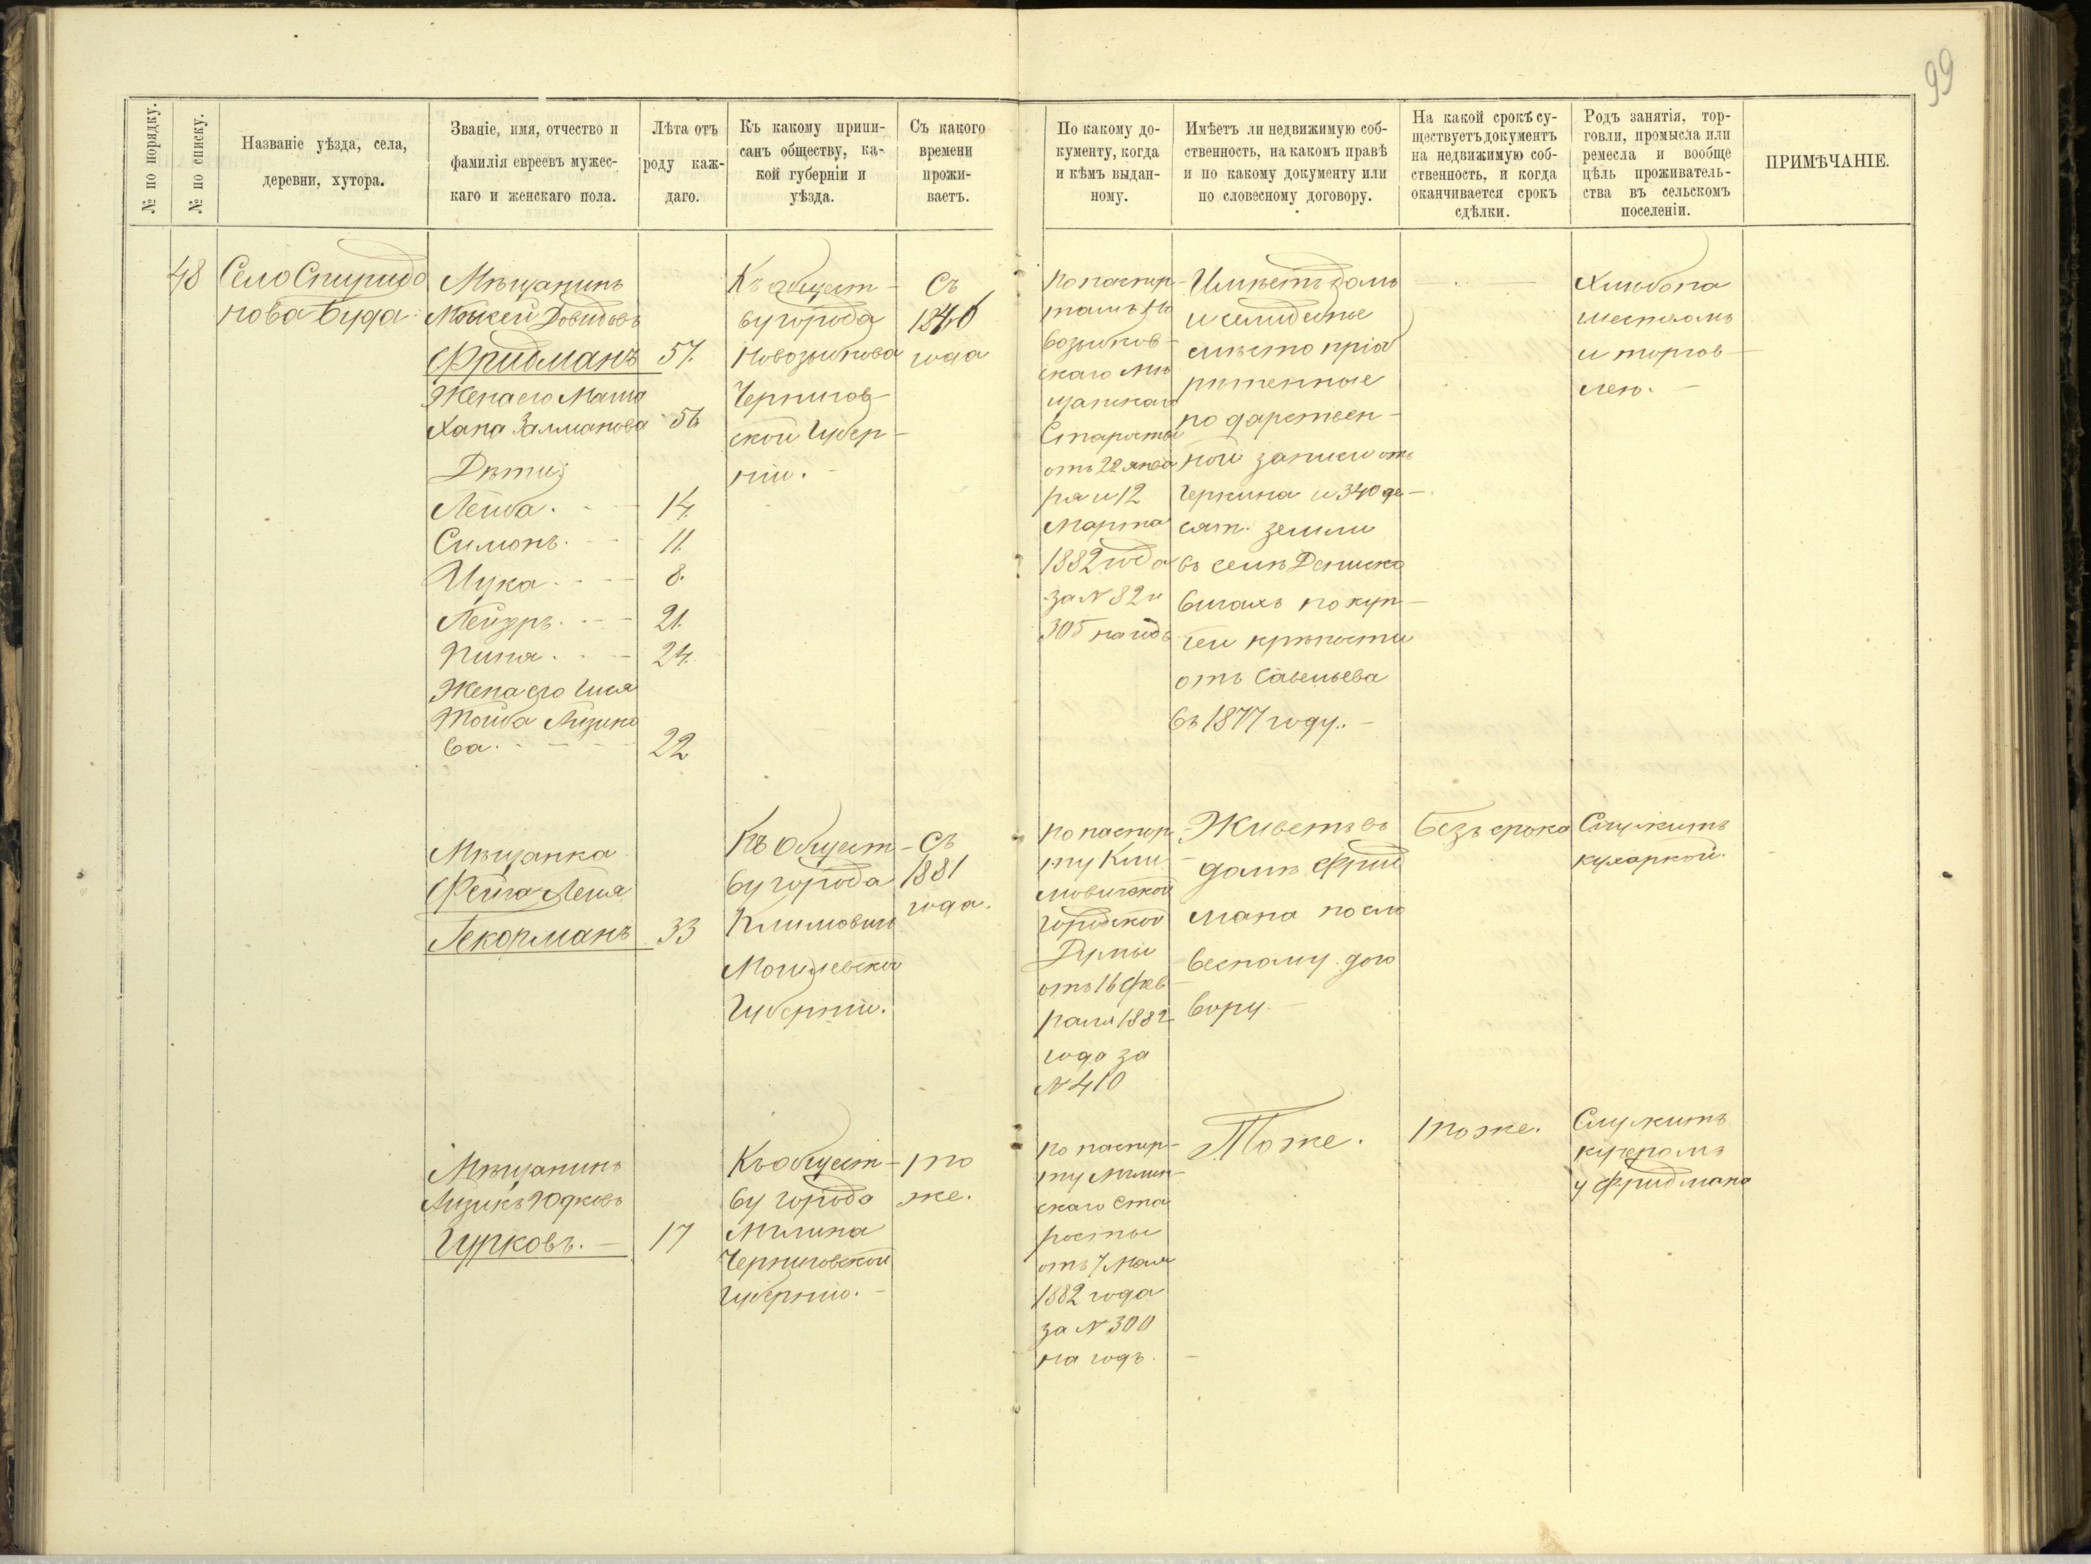 99
№ по порядку.
№ по списку.
Названіе уѣзда, села,
деревни, хутора.
Званіе, имя, отчество и
фамилія евреевъ мужес-
каго и женскаго пола.
Лѣта отъ
роду каж-
даго.
Къ какому припи-
санъ обществу, ка-
кой губерніи и
уѣзда.
Съ какого
времени
прожи-
ваетъ.
По какому до-
кументу, когда
и кѣмъ выдан-
ному.
Имѣетъ ли недвижимую соб-
ственность, на какомъ правѣ
и по какому документу или
по словесному договору.
На какой срокъ су-
ществуетъ документъ
на недвижимую соб-
ственность, и когда
оканчивается срокъ
сдѣлки.
Родъ занятія, тор-
говли, промысла или
ремесла и вообще
цѣль проживатель-
ства въ сельскомъ
поселеніи.
ПРИМѢЧАНІЕ.
48
Село Спиридо
нова Буда.
Мѣщанинъ
Мовкей Довидовъ
Фридманъ 57.
Жена его Маша
Хана Залманова 56
Дѣти:
Лейба. 14.
Симонъ. 11.
Цука 8.
Лейзеръ. 21.
Пиня. 24.
Жена его
Тойба Айзико
ва. 22
Къ общест-
ву города
Новозыбкова
Чернигов-
ской Губер-
ніи.
Съ
1840
года
По паспор-
тамъ Но
возыбков-
скаго Мѣ
щанскаго
Старосты
отъ 22 янва
ря и 12
Марта
1882 года
за N 82 и
305 на годъ
Имѣетъ домъ
и селидебное
мѣсто пріоб
рѣтенное
по дарствен-
ной записи отъ
Черкина и 340 де-
сят. земли
въ селѣ Дениско
вичахъ по куп-
чей крѣпости
отъ Савельева
въ 1877 году.
Хлѣбопа
шествомъ
и торгов-
лею.
Мѣщанка
Фейга Лея
Лекорманъ 33
Къ общест-
ву города
Климович
Могилевской
Губерніи.
Съ
1881
года.
По паспор-
ту Кли-
мовичской
Городской
Думы
отъ 16 фев-
раля 1882
года за
N 410
Живетъ въ
домѣ Фрид
мана по сло
весному дого
вору.
Безъ срока
Служитъ
кухаркой.
Мѣщанинъ
Айзикъ Юдковъ
Гурковъ. 17
Къ общест-
ву города
Мглина
Черниговской
Губерніи.
то
же.
По паспор-
ту Мглин-
скаго Ста
росты
отъ 7 Мая
1882 года
за N 300
на годъ.
Тоже.
тоже.
Служитъ
кучеромъ
у Фридмана